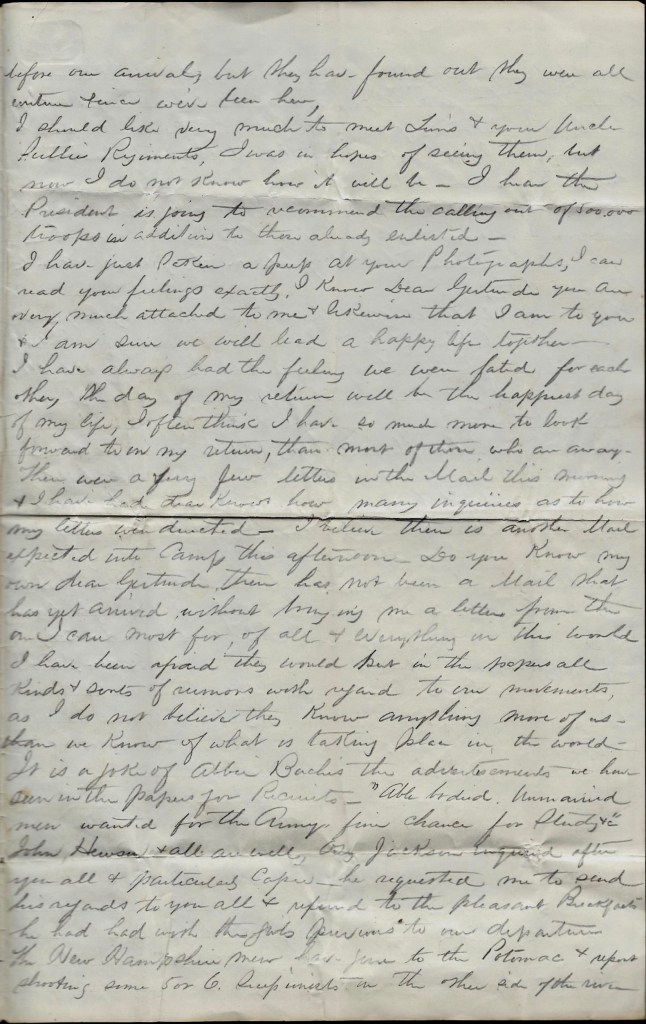 before our arrival, but they have found out they were all
& since we've been here,
I should like very much to meet & your Uncle
Regiments, I was in hopes of seeing them, but
now I do not know how it will be - I hear the
President is going to recommend the calling out of 500.000
troops in addition to those already enlisted -
I have just taken a peep at your Photographs, I can
read your feelings exactly, I know Dear Gertrude you are
very much attached to me & likewise that I am to you
& I am sure we will lead a happy life together -
I have always had the feeling we were fated for each
other, the day of my return will be the happiest day
of my life, I often think I have so much more to look
forward to on my return, than most of those who are away -
There were a very few letters in the Mail this morning
& I have had dear knows how many inquiries as to how
my letters were directed - I believe there is another Mail
expected into Camp this afternoon - Do you know my
own dear Gertrude, there has not been a Mail that
has yet arrived, without bringing me a letter from the
one I care most for, of all & everything in this world
I have been afraid they would put in the papers all
kinds & sorts of rumors with regard to our movements,
as I do not believe they know anything more of us -
than we know of what is taking place in the world -
It is a joke of the advertisements we have
seen in the papers for Recruits - "Able bodied. Unmarried
men wanted for the Army, fine chance for Study &c"
John & all are well, Jackson inquired after
you all & particularly he requested me to send
his regards to you all & referred to the pleasant Breakfasts
he had had with the girls previous to our departure
The New Hampshire men have gone to the Potomac & report
shooting some 5 or 6. on the other side of the river